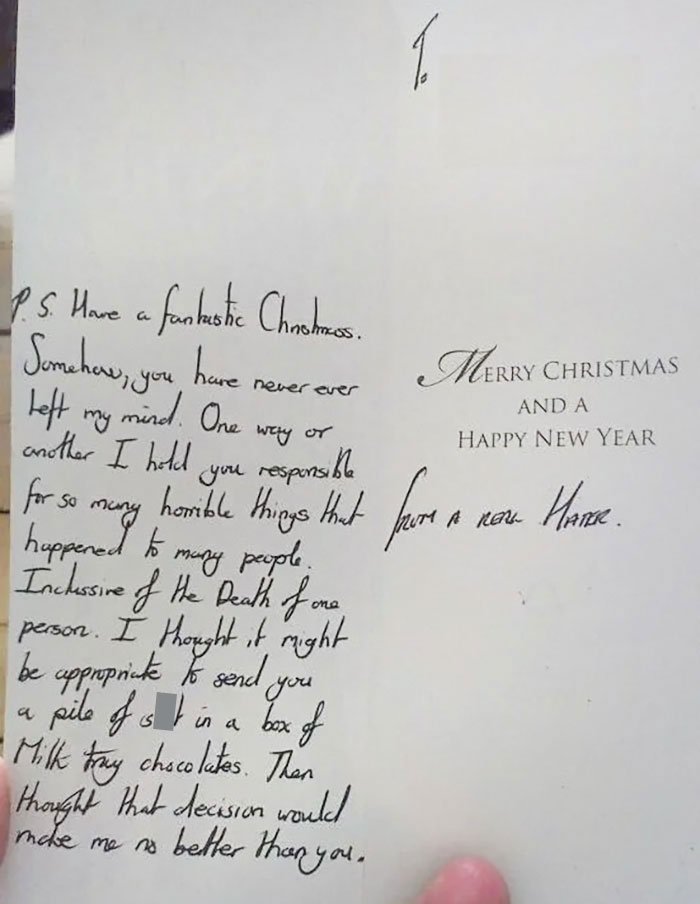 T.
P.S. Have a fantastic Christmass.
Somehow, you have never ever
left my mind. One way or
another I hold you responsible
for so many horrible things that
happened to many people.
Inclussive of the Death of one
person. I thought it might
be appropriate to send you
a pile of s t in a box of
Milk tray chocolates. Then
thought that decision would
make me no better than you.
MERRY CHRISTMAS
AND A
HAPPY NEW YEAR
from A REAL HATER.